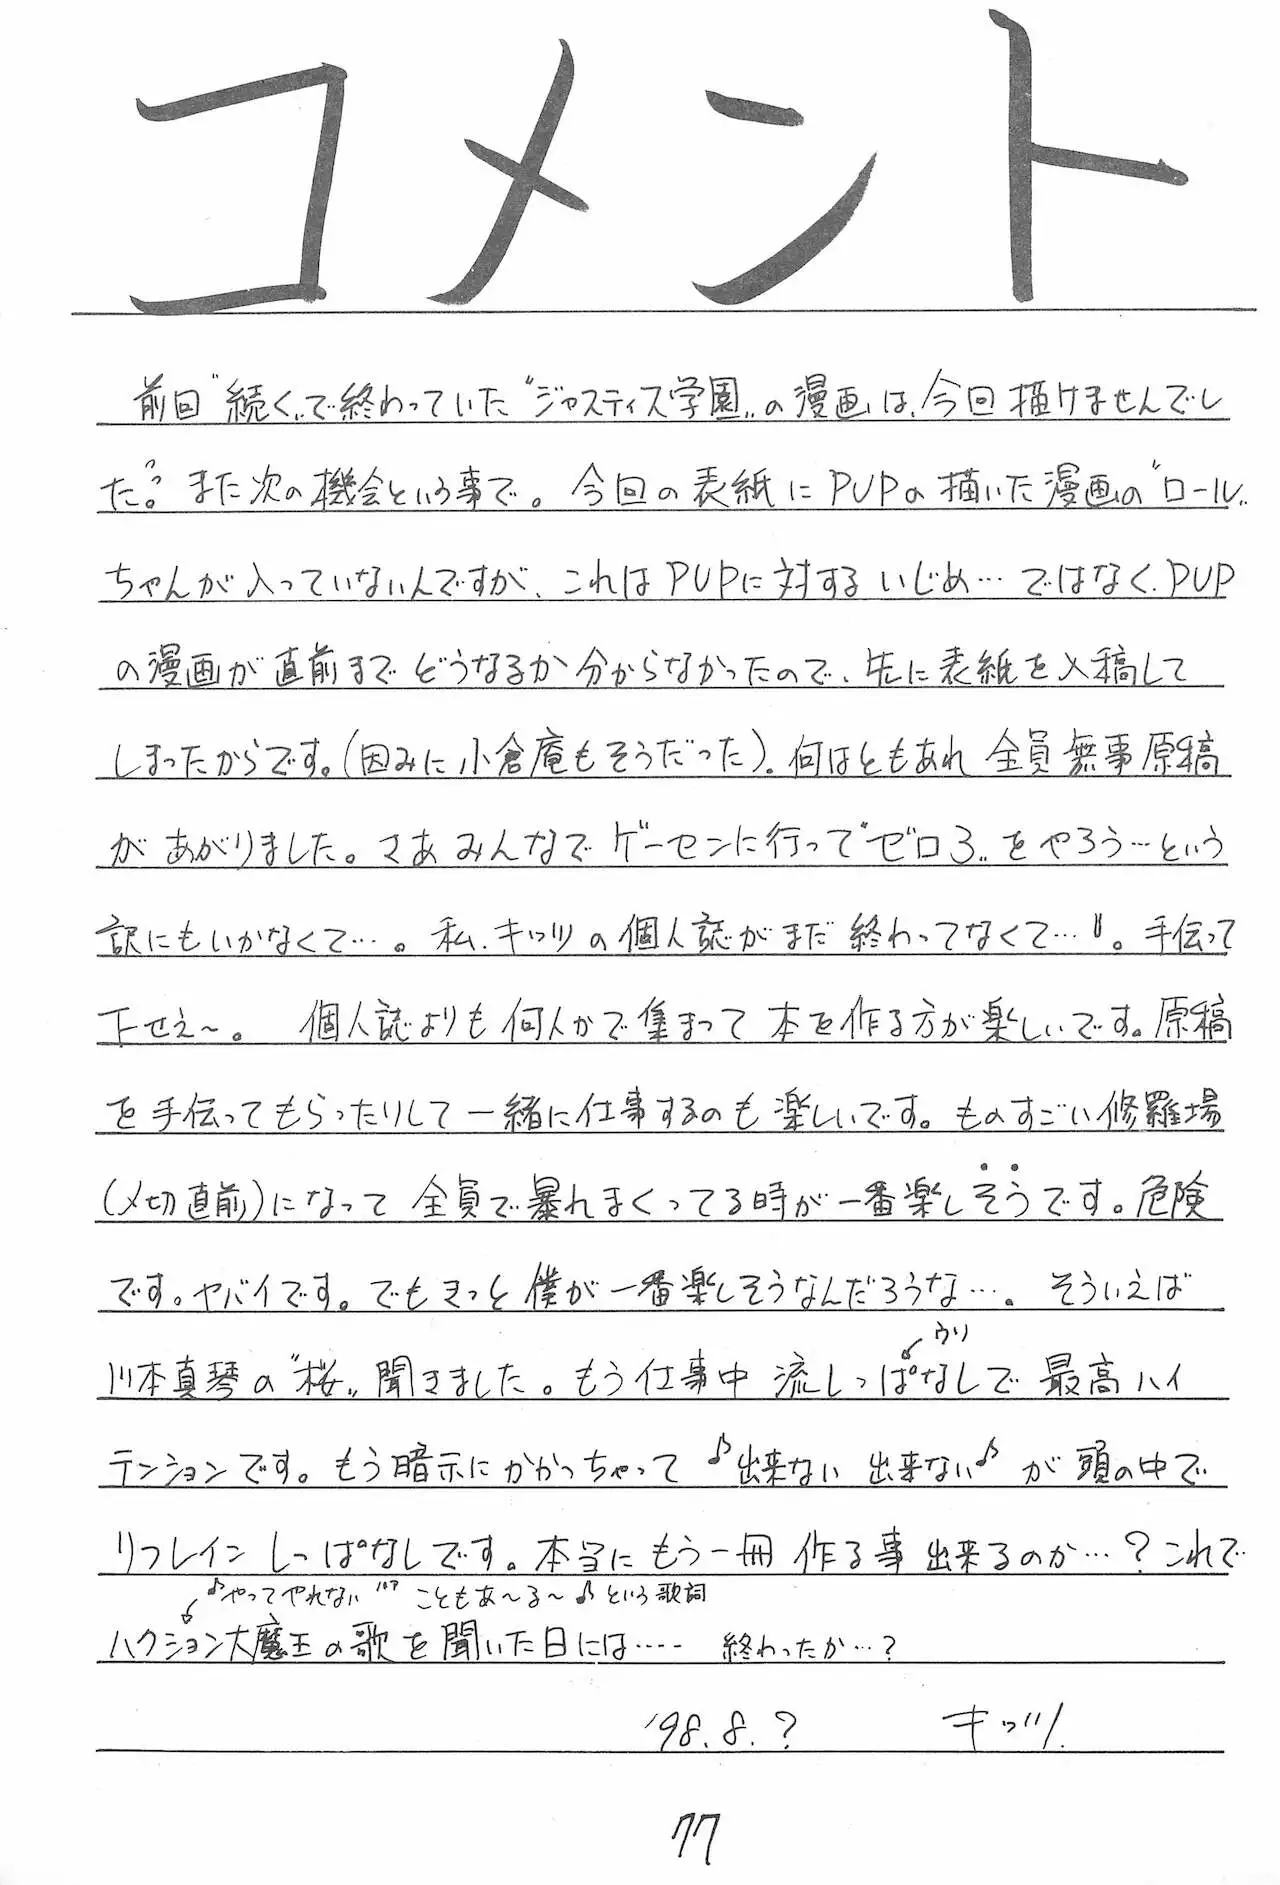 コメント
前回“続く„で終わっていた“ジャスティス学園„の漫画は、今回描けませんでし
た。また次の機会という事で。今回の表紙にPUPの描いた漫画の“ロール„
ちゃんが入っていないんですが、これはPUPに対するいじめ…ではなく、PUP
の漫画が直前までどうなるか分からなかったので、先に表紙を入稿して
しまったからです。(因みに小倉庵もそうだった)。何はともあれ全員無事原稿
があがりました。さあみんなでゲーセンに行って“ゼロ3„をやろう…という
訳にもいかなくて…。私、キッツの個人誌がまだ終わってなくて…。手伝って
下せえ〜。 個人誌よりも何人かで集まって本を作る方が楽しいです。原稿
を手伝ってもらったりして一緒に仕事するのも楽しいです。ものすごい修羅場
(〆切直前)になって全員で暴れまくってる時が一番楽しそうです。危険
です。ヤバイです。でもきっと僕が一番楽しそうなんだろうな…。 そういえば
ウソ
川本真琴の“桜„聞きました。もう仕事中流しっぱなしで最高ハイ
テンションです。もう暗示にかかっちゃって♪出来ない 出来ない♪が頭の中で
リフレインしっぱなしです。本当にもう一冊作る事出来るのか…?これで
♪やってやれない こともあ〜る〜♪という歌詞
ハクション大魔王の歌を聞いた日には…… 終わったか…?
'98.8.? キッツ
77